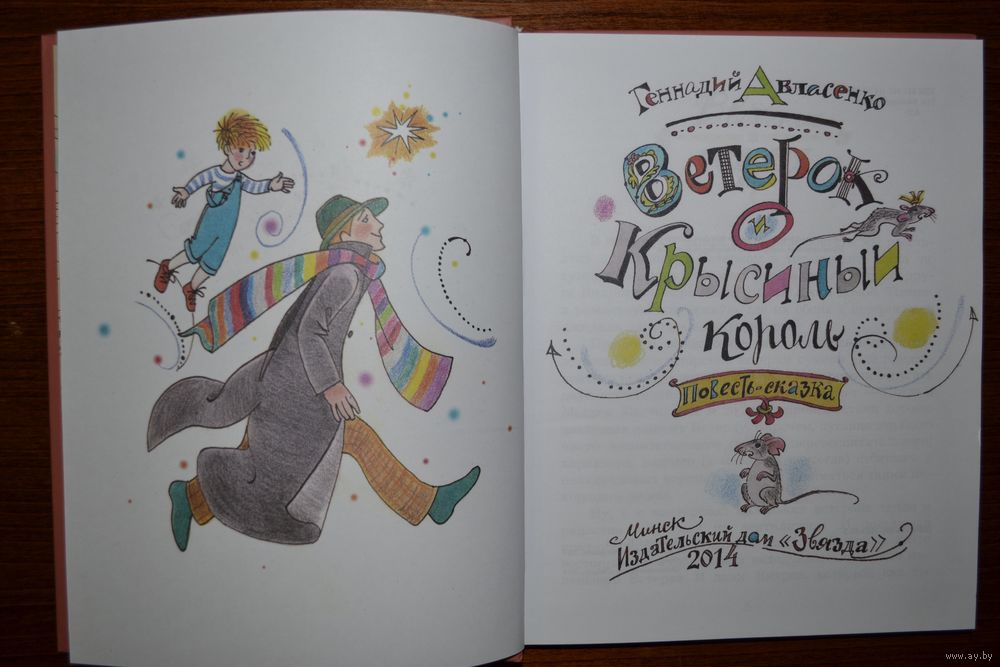 Геннадий Авласенко
Ветерок
и
Крысиный
король
Повесть-сказка
Минск
Издательский дом «Звязда»
2014
www.ay.by